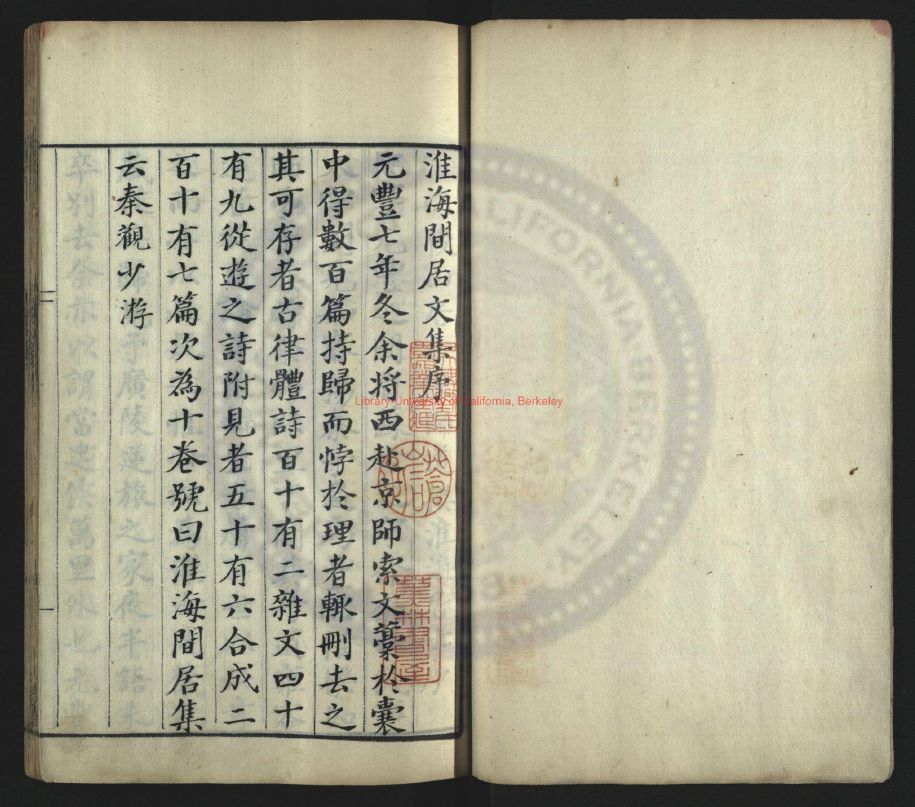 淮海間居文集序
元豐七年冬余將西赴京師索文藁於囊
中得數百篇持歸而悖於理者輙刪去之
其可存者古律體詩百十有二雜文四十
有九從遊之詩附見者五十有六合成二
百十有七篇次為十卷號曰淮海間居集
云秦觀少游
Library University of California, Berkeley